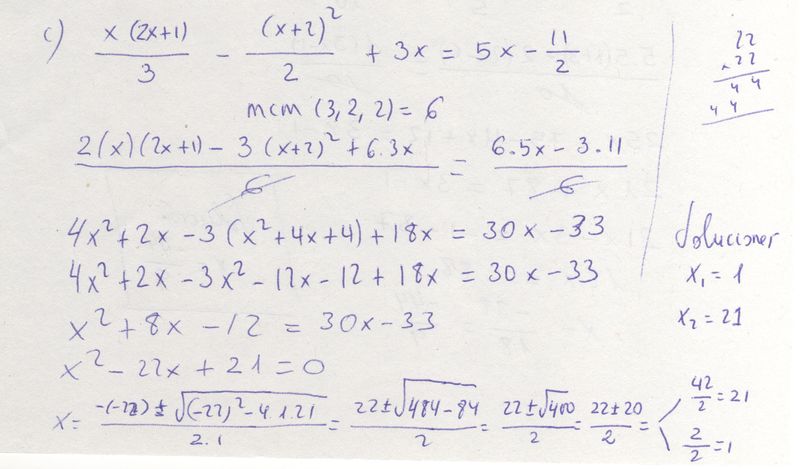 c) x(2x+1)/3 - (x+2)²/2 + 3x = 5x - 11/2
mcm (3,2,2) = 6
2(x)(2x+1) - 3(x+2)² + 6.3x / 6 = 6.5x - 3.11 / 6
4x² + 2x - 3(x² + 4x + 4) + 18x = 30x - 33
4x² + 2x - 3x² - 12x - 12 + 18x = 30x - 33
x² + 8x - 12 = 30x - 33
x² - 22x + 21 = 0
x = -(-22) ± √(-22)² - 4.1.21 / 2.1 = 22 ± √484 - 84 / 2 = 22 ± √400 / 2 = 22 ± 20 / 2 =
42/2 = 21
2/2 = 1
22
x22
44
44
Soluciones
x₁ = 1
x₂ = 21